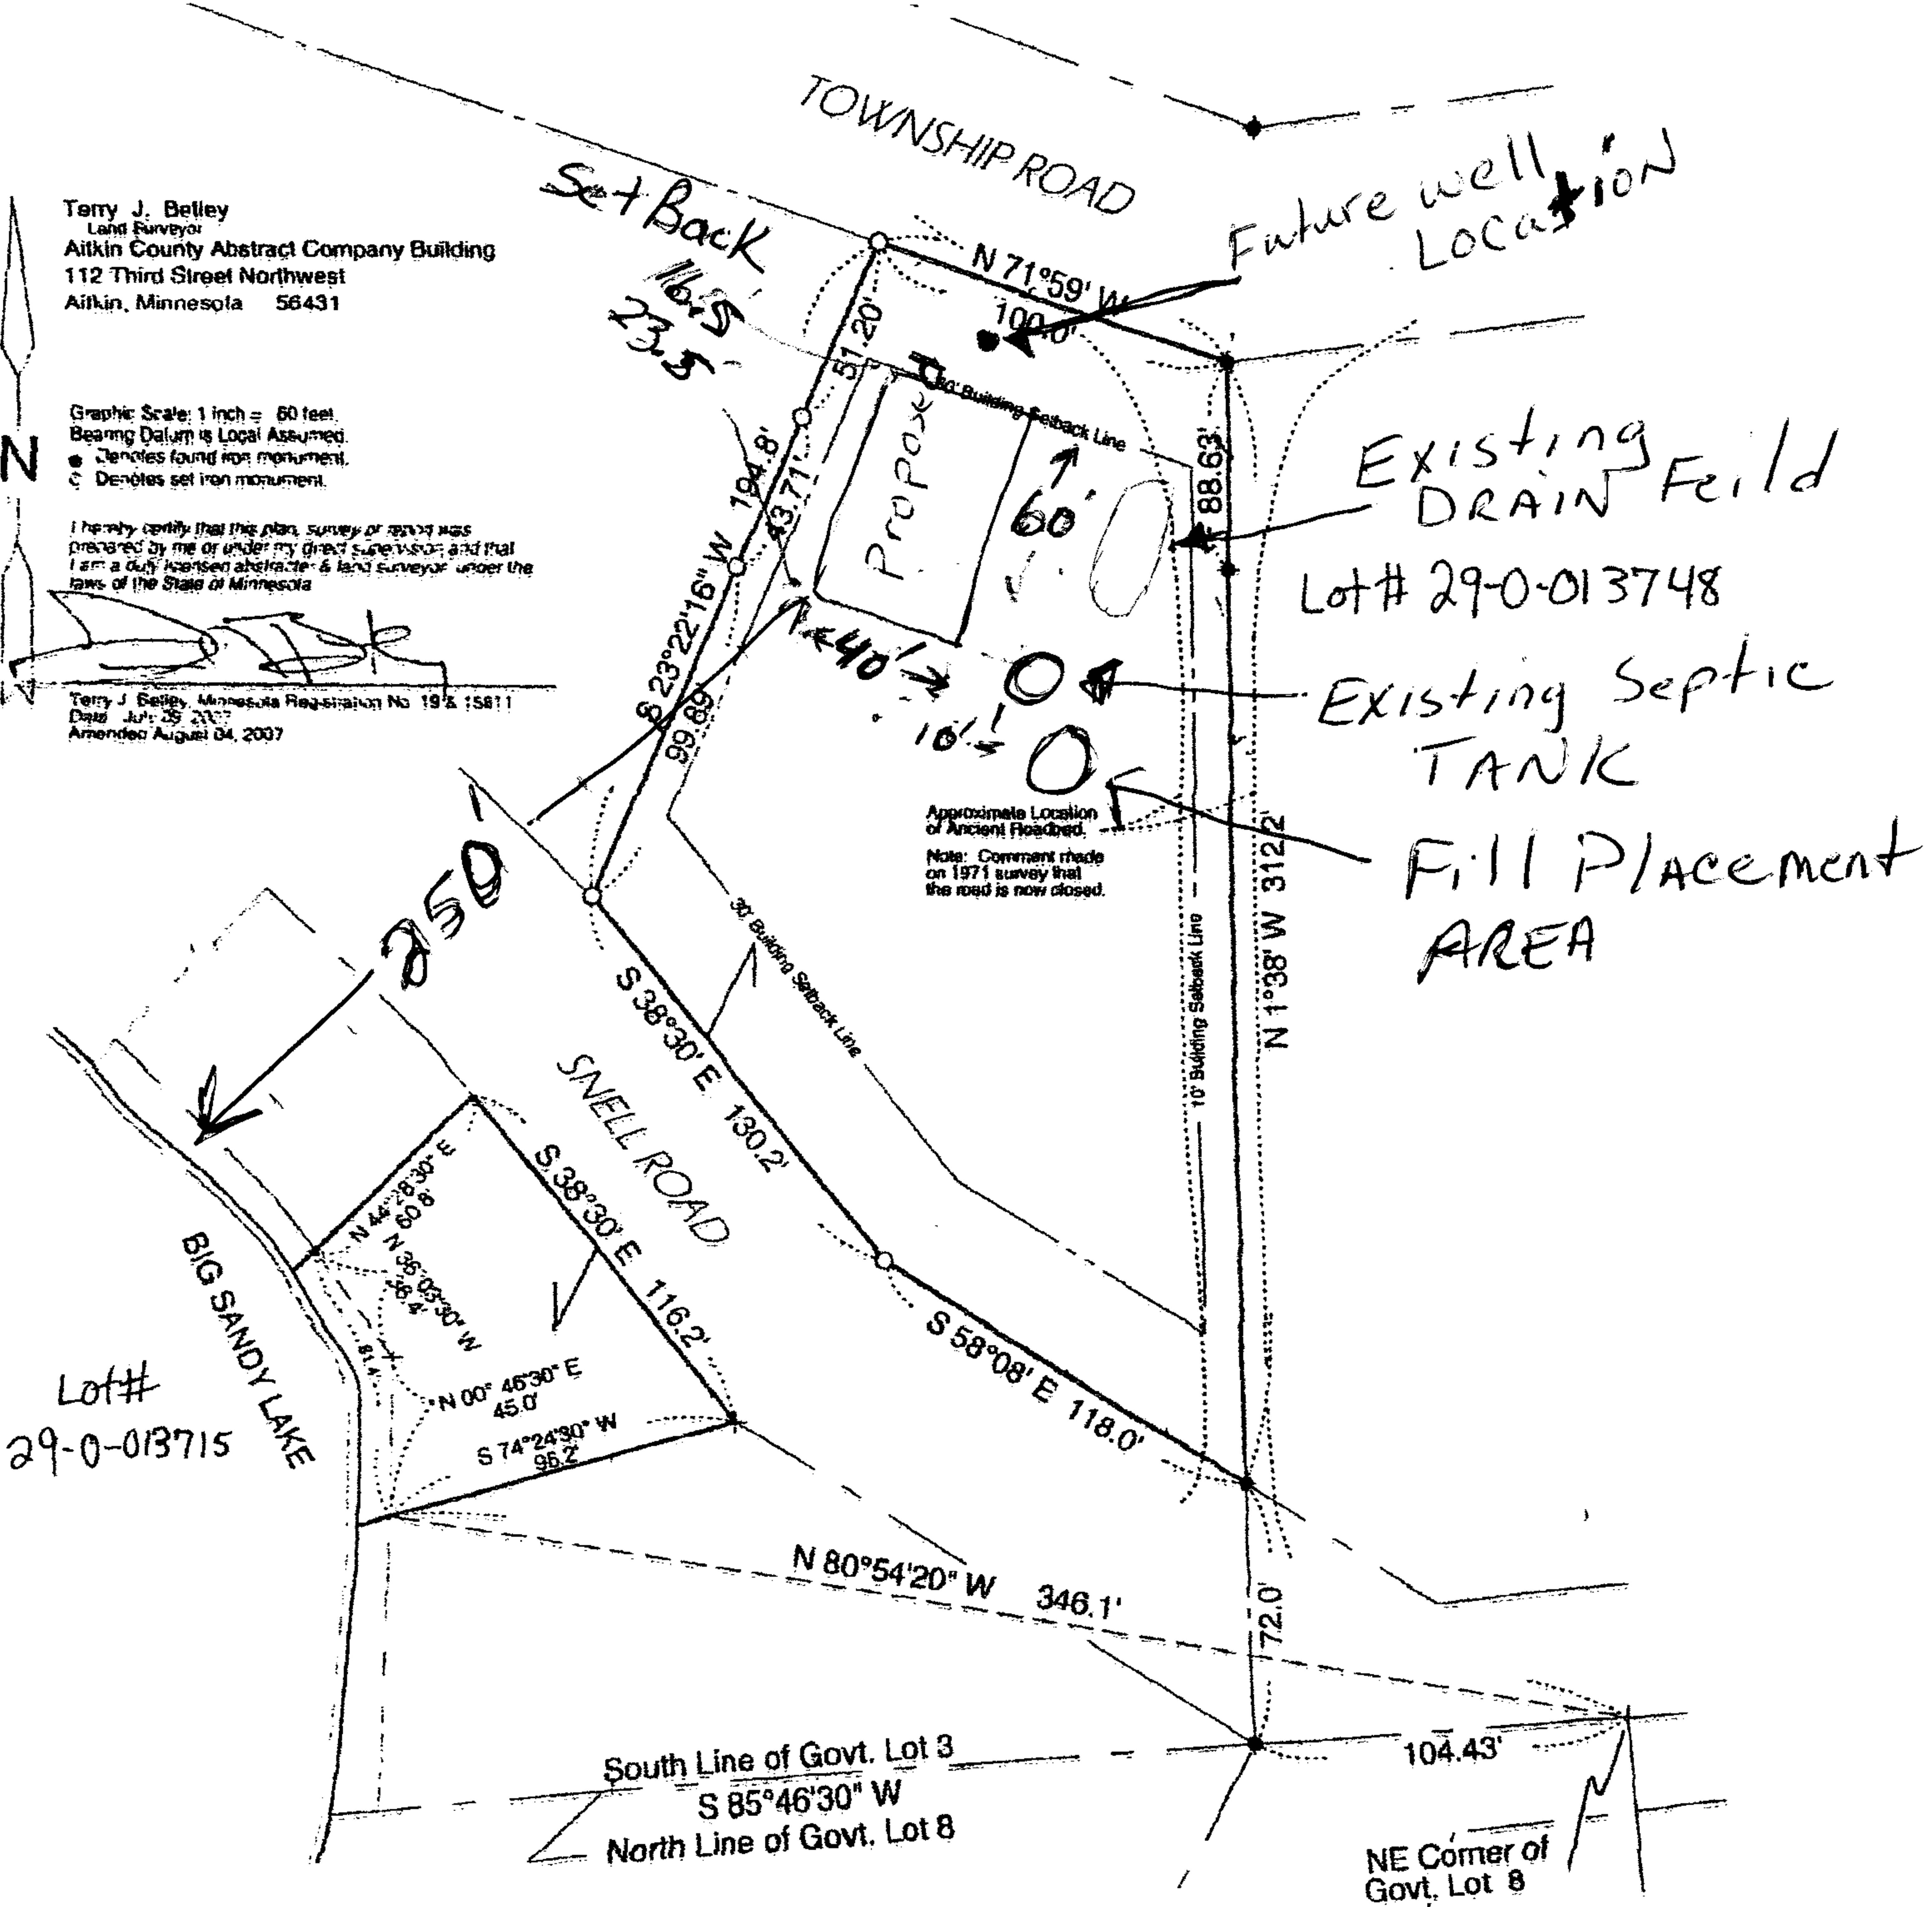 TOWNSHIP ROAD
Set Back
16.5
23.5
Future well
Location
Terry J. Betley
Land Surveyor
Aitkin County Abstract Company Building
112 Third Street Northwest
Aitkin, Minnesota 56431
N
Graphic Scale: 1 inch = 60 feet.
Bearing Datum is Local Assumed.
Denotes found iron monument.
Denotes set iron monument.
I hereby certify that this plan, survey or report was
prepared by me or under my direct supervision and that
I am a duly licensed abstracter & land surveyor under the
laws of the State of Minnesota
Terry J. Betley, Minnesota Registration No. 19 & 15811
Date July 2007
Amended August 04, 2007
N 71°59' W
100.0'
51.20'
43.71'
99.89'
S 23°22'16" W 194.8'
30' Building Setback Line
Proposed
60'
40'
10'
88.63'
Existing
DRAIN Feild
Lot# 29-0-013748
Existing Septic
TANK
Fill Placement
AREA
Approximate Location
of Ancient Roadbed.
Note: Comment made
on 1971 survey that
the road is now closed.
250'
30' Building Setback Line
10' Building Setback Line
N 1°38' W 312.2'
S 38°30' E 130.2'
SNELL ROAD
S 38°30' E 116.2'
N 44°28'30" E
60.8'
N 36°03'30" W
81.4'
N 00° 46'30" E
45.0'
S 74°24'30" W
96.2'
BIG SANDY LAKE
Lot#
29-0-013715
S 58°08' E 118.0'
N 80°54'20" W 346.1'
72.0'
104.43'
South Line of Govt. Lot 3
S 85°46'30" W
North Line of Govt. Lot 8
NE Corner of
Govt. Lot 8